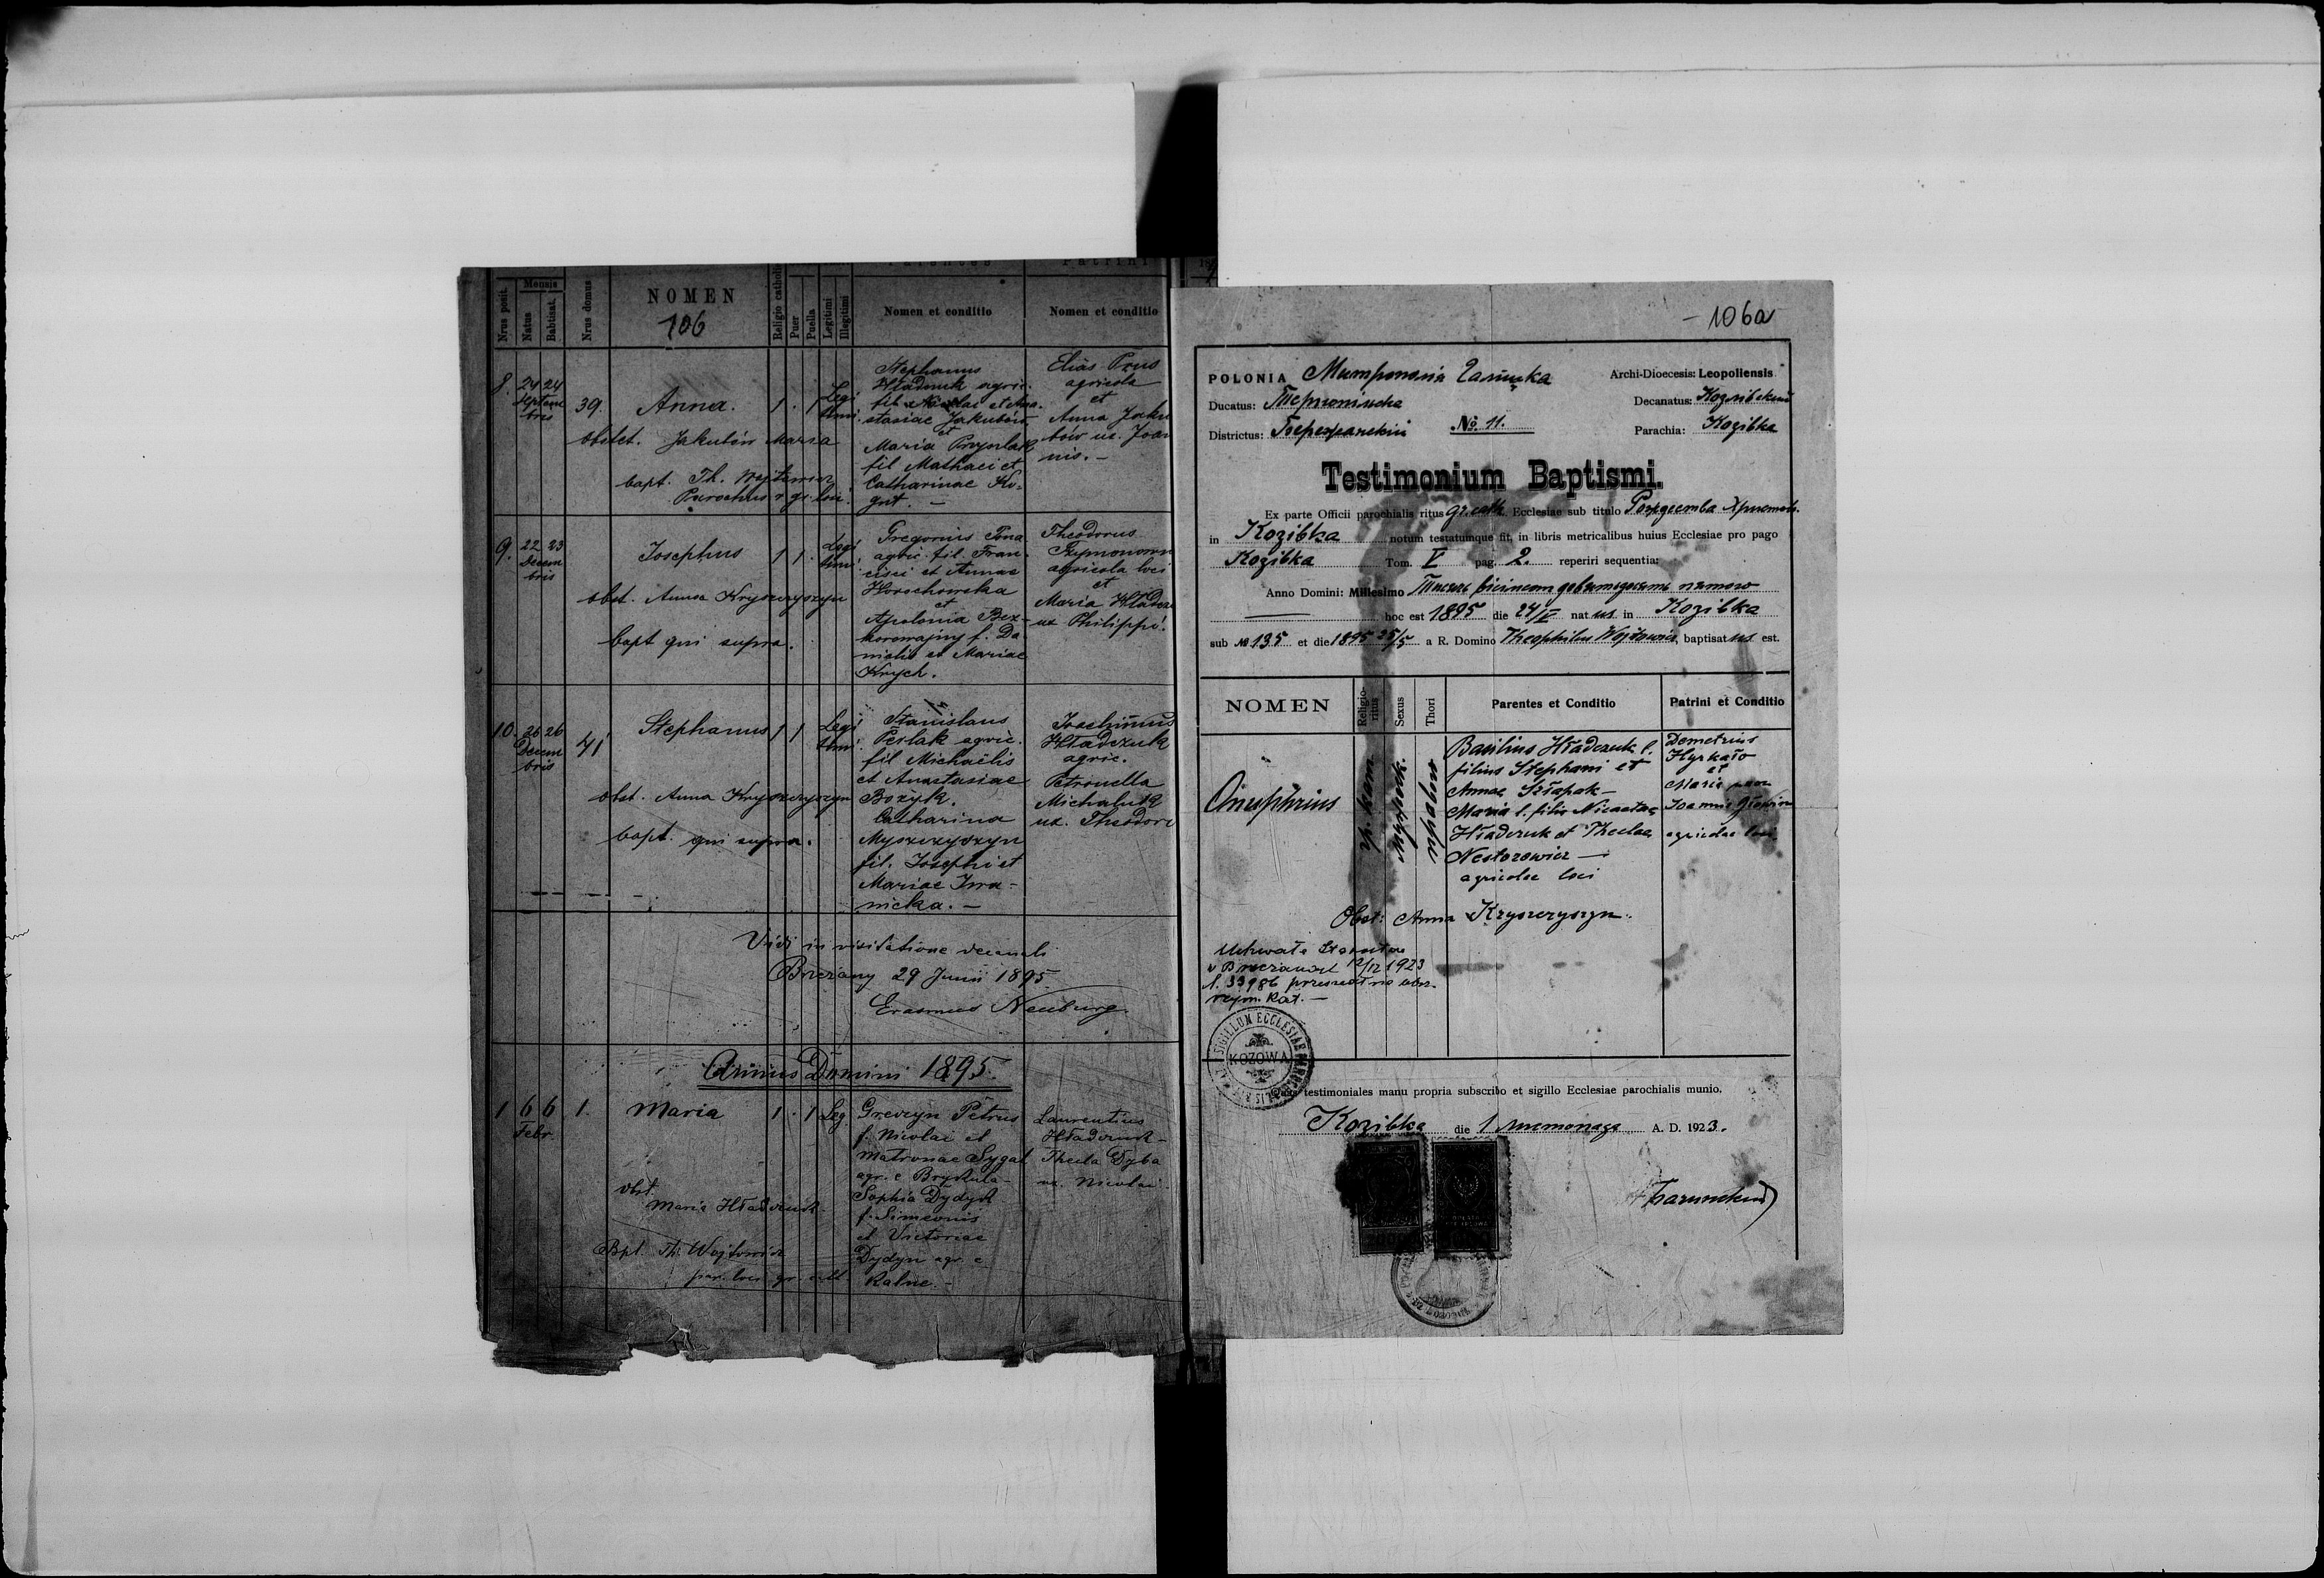 Parentes
Patrini
Nrus posit.
Mensis
Natus
Babtisat.
Nrus domus
NOMEN
106
Religio catholic
Puer
Puella
Legitimi
Illegitimi
Nomen et conditio
Nomen et conditio
8. 24 24
Septem
bris
39.
Anna. 1 . 1
Legi
timi
obstet. Jakubów Maria
bapt. Th. Wojtowicz
Parochus r. gr. loci.
Stephanus
Hładczuk agric.
fil. Nicolai et Ana-
stasiae Jakubów
et
Maria Przyslak
fil Mathaei et
Catharinae Ko-
gut. -
Elias Prus
agricola
et
Anna Jaku
bów ux. Joan
nis. -
9. 22 23
Decem
bris
Josephus 1 1 .
Legi
timi
obst. Anna Kryszczyszyn
bapt qui supra.
Gregorius Pona
agric. fil. Fran-
cisci et Annae
Horochowska
et
Apolonia Bez-
korowajny f. Da-
nielis et Mariae
Krych.
Theodorus
Szymonowi
agricola loci
et
Maria Hładcz
ux Philippi.
10. 26 26
Decem
bris
41
Stephanus 1 1
Legi
timi
obst. Anna Kryszczyszyn
bapt. qui supra.
Stanislaus
Perlak agric.
fil Michaëlis
et Anastasiae
Bozyk.
Catharina
Myszczyszyn
fil. Josephi et
Mariae Iwa-
nicka. -
Joachimus
Hładczuk
agric.
Petronella
Michaluk
ux. Theodori
Vidi in visitatione decanali
Brzezany 29 Junii 1895
Erasmus Neuburg
Annus Domini 1895.
1 6 6 1. Maria 1 . 1 Leg.
Febr.
obst.
Maria Hładczuk
Bpt. Th. Wojtowicz
par. loci gr. cath
Grevzyn Petrus
f. Nicolai et
Matronae Sygal
agr. e Brykula-
Sophia Dydyk
f. Simeonis
et Victoriae
Dydyn agr. e
Kalne. -
Laurentius
Hładczuk -
Thecla Dyba
ux. Nicolai
- 106a
POLONIA Митрополія Галицка
Archi-Dioecesis: Leopoliensis
Ducatus: Тернопільска
Decanatus: Козлівский
Districtus: Бережанский
No. 11.
Parachia: Козівка
Testimonium Baptismi.
Ex parte Officii parochialis ritus gr. cath. Ecclesiae sub titulo Рождества Христов.
in Козівка notum testatumque fit, in libris metricalibus huius Ecclesiae pro pago
Козівка Tom. V pag. 2. reperiri sequentia:
Anno Domini: Millesimo Тисяч вісімсот девятьдесять пятого
hoc est 1895 die 24/V natus in Козівка
sub № 135 et die 1895 25/5 a R. Domino Theophilus Wojtowicz, baptisatus est.
NOMEN
Religio-
ritus
Sexus
Thori
Parentes et Conditio
Patrini et Conditio
Onuphrius
гр. кат.
мужеск.
правого
Basilius Hładczuk l.
filius Stephani et
Annae Szłapak -
Maria l. filia Nicaetae
Hładczuk et Theclae
Nestorowicz -
agricolae loci
Demetrius
Hyrkało
et
Maria
Joannis
agricolae loci
Obst: Anna Kryszczyszyn.
Uchwała Starostwa
w Brzezanach 12/12 1923
l. 33986
rzym. Kat. -
SIGILLUM ECCLESIAE PAROCHIALIS
KOZOWA
testimoniales manu propria subscribo et sigillo Ecclesiae parochialis munio.
Козівка die 1 Листопада A. D. 1923.